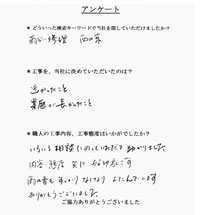 アンケート
＊どういった検索キーワードで当社を探していただけましたか？
雨どい修理　雨の音
＊工事を、当社に決めていただいたのは？
近かったこと
実歴が長かったこと
＊職人の工事内容、工事態度はいかがでしたか？
いろいろ相談にのっていただき助かりました
内容 態度 共に です
雨の音も すっかり なくなり よろこんでいます
ありがとうございました
ご協力ありがとうございました